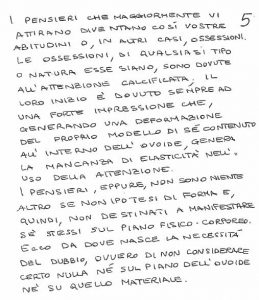 I PENSIERI CHE MAGGIORMENTE VI
ATTIRANO DIVENTANO COSÌ VOSTRE 5
ABITUDINI O, IN ALTRI CASI, OSSESSIONI.
LE OSSESSIONI, DI QUALSIASI TIPO
O NATURA ESSE SIANO, SONO DOVUTE
ALL'ATTENZIONE CALCIFICATA. IL
LORO INIZIO È DOVUTO SEMPRE AD
UNA FORTE IMPRESSIONE CHE,
GENERANDO UNA DEFORMAZIONE
DEL PROPRIO MODELLO DI SÉ CONTENUTO
ALL'INTERNO DELL'OVOIDE, GENERA
LA MANCANZA DI ELASTICITÀ NELL'
USO DELLA ATTENZIONE.
I PENSIERI, EPPURE, NON SONO NIENTE
ALTRO SE NON IPOTESI DI FORMA E,
QUINDI, NON DESTINATI A MANIFESTARE
SÉ STESSI SUL PIANO FISICO-CORPOREO.
ECCO DA DOVE NASCE LA NECESSITÀ
DEL DUBBIO, OVVERO DI NON CONSIDERARE
CERTO NULLA NÉ SUL PIANO DELL'OVOIDE
NÉ SU QUELLO MATERIALE.